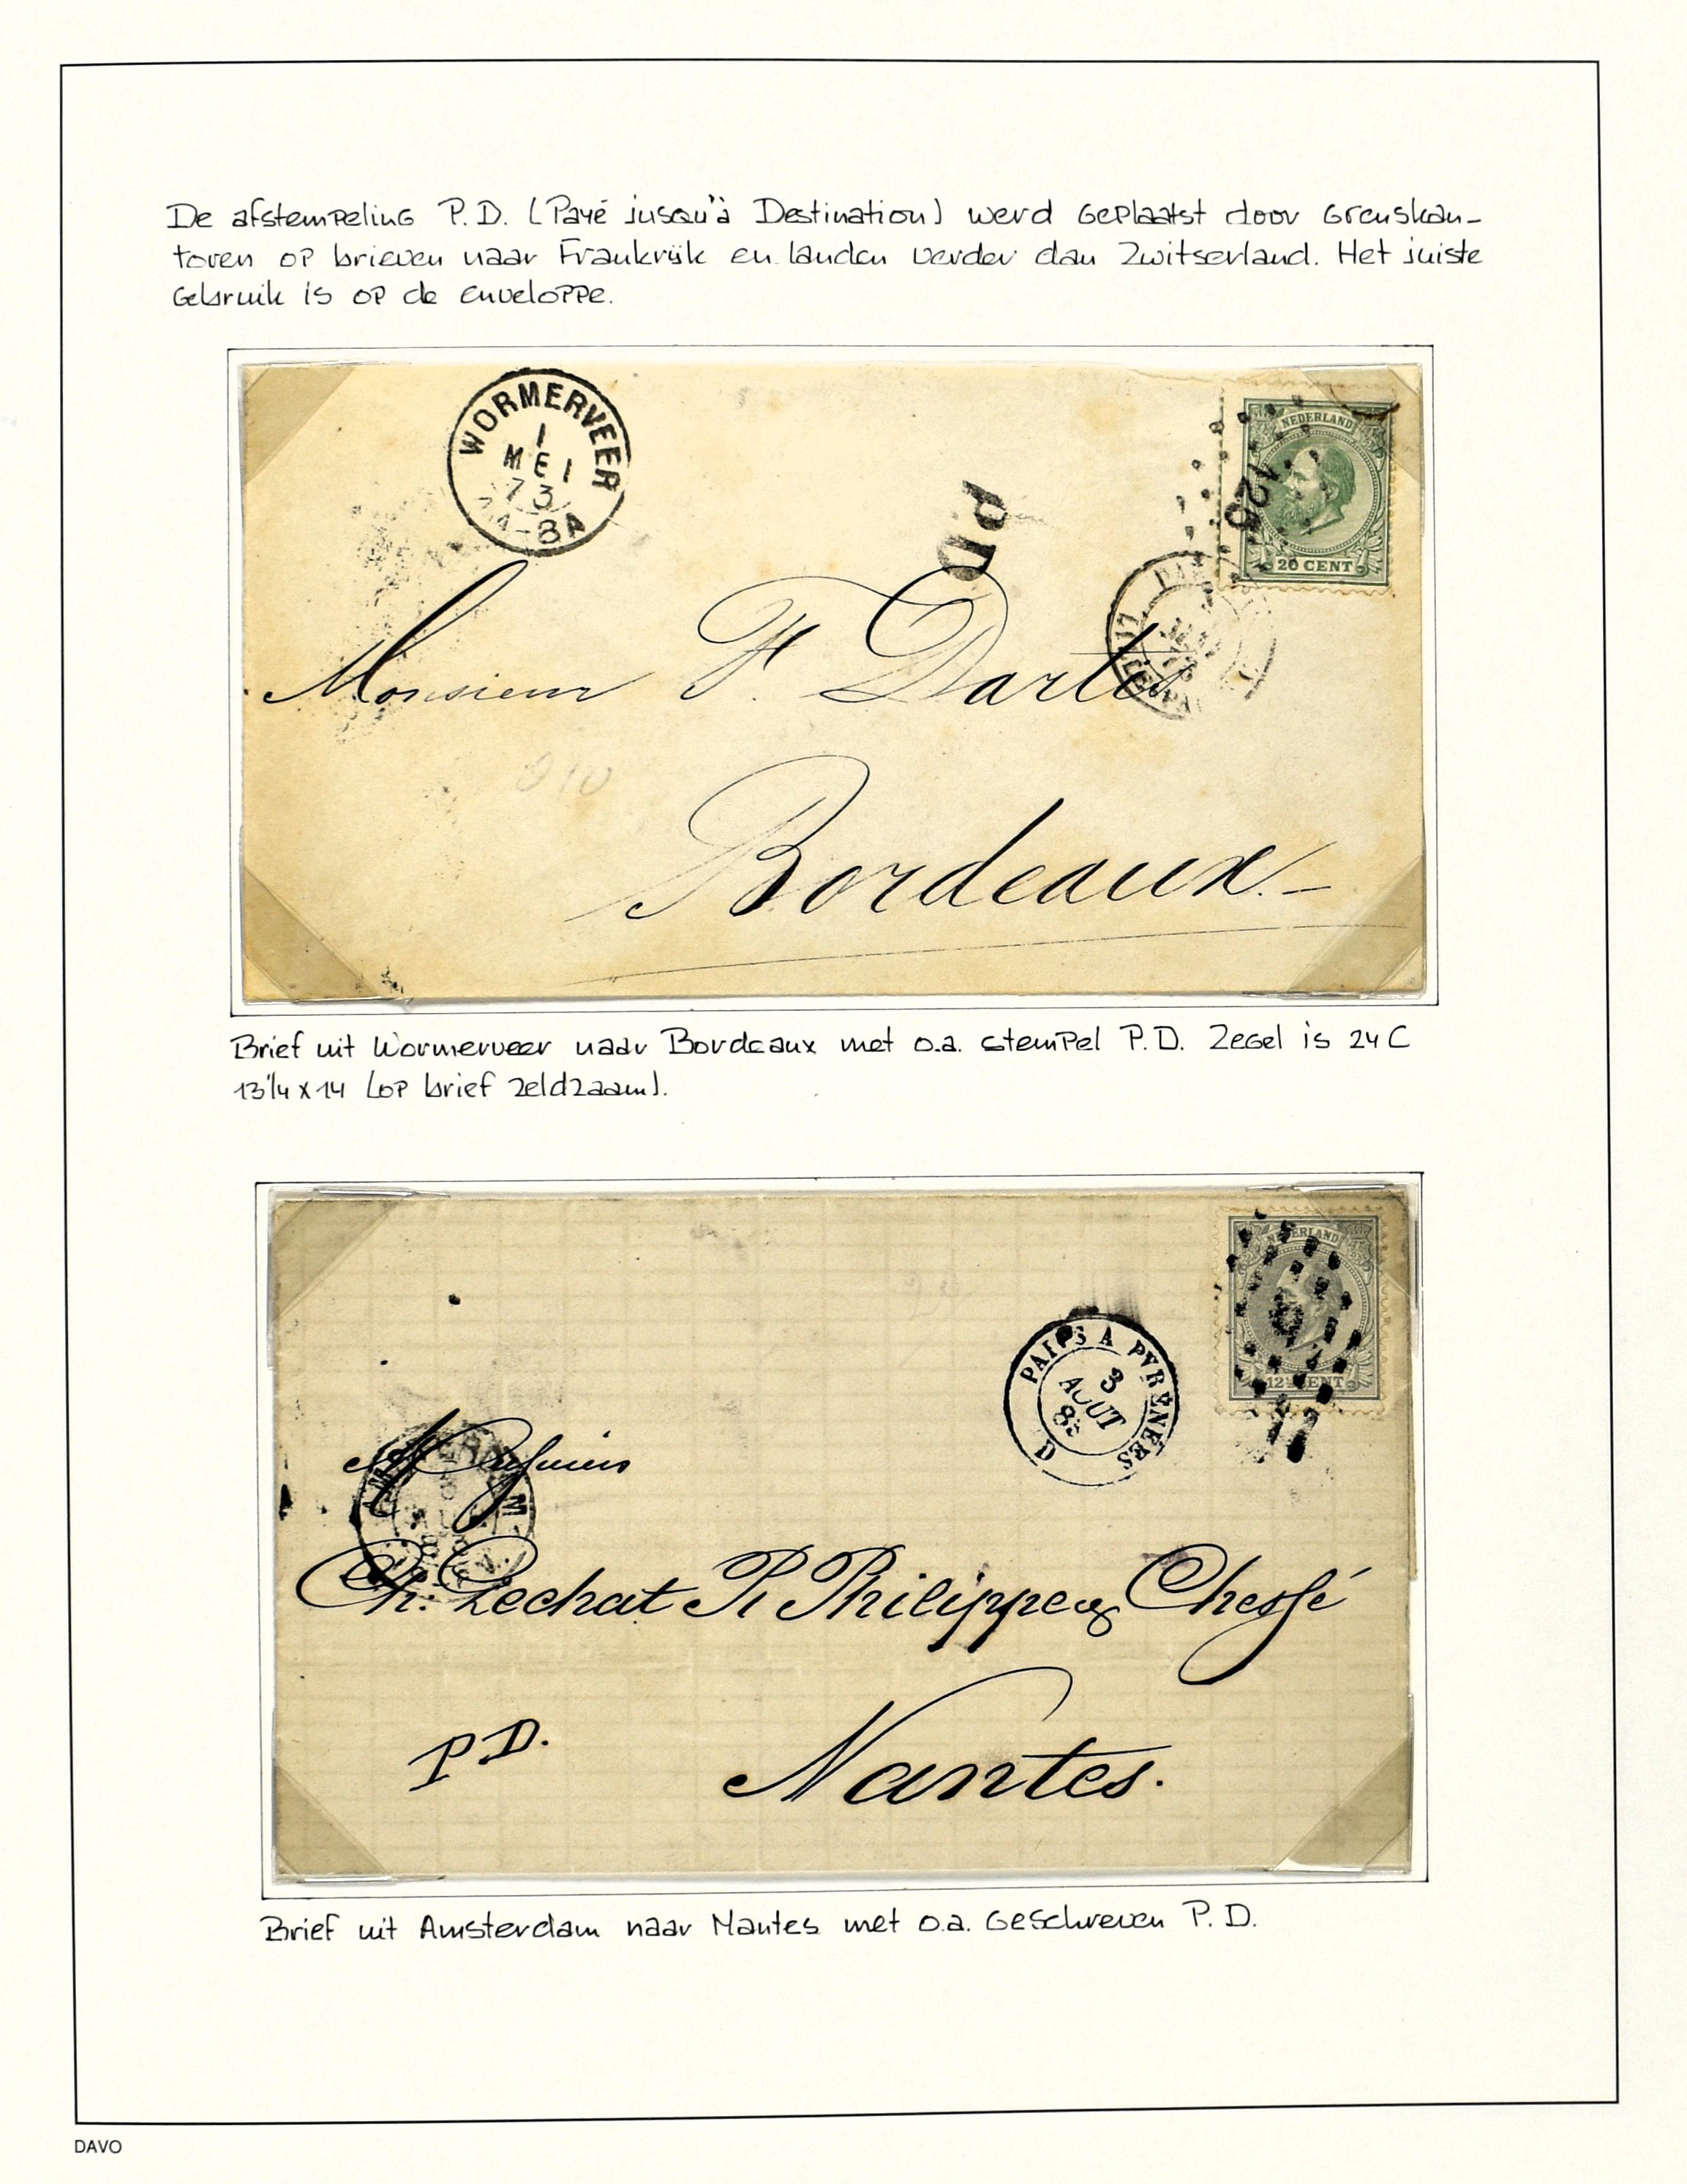 De afstempeling P.D. (Payé jusqu'à Destination) werd geplaatst door grenskan-
toren op brieven naar Frankrijk en landen verder dan Zwitserland. Het juiste
gebruik is op de enveloppe.
WORMERVEER
1
MEI
73
-8A
PD
NEDERLAND
126
20 CENT
Monsieur F. Dartès
Bordeaux.
Brief uit Wormerveer naar Bordeaux met o.a. stempel P.D. Zegel is 24C
13¼ x 14 (op brief zeldzaam).
NEDERLAND
12½ CENT
PAYS A PYRENEES
3
AOUT
D
Messieurs
Ch: Lechat R Philippe & Chessé
P D.
Nantes.
Brief uit Amsterdam naar Nantes met o.a. geschreven P.D.
DAVO